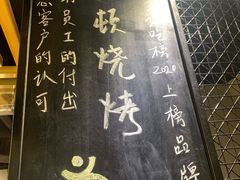 吃榜2020上榜品牌
顿烧烤
员工的付出
客户的认可